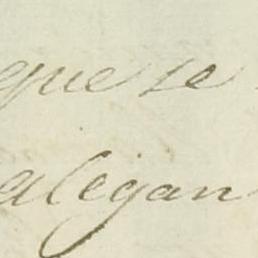 que se
alegan